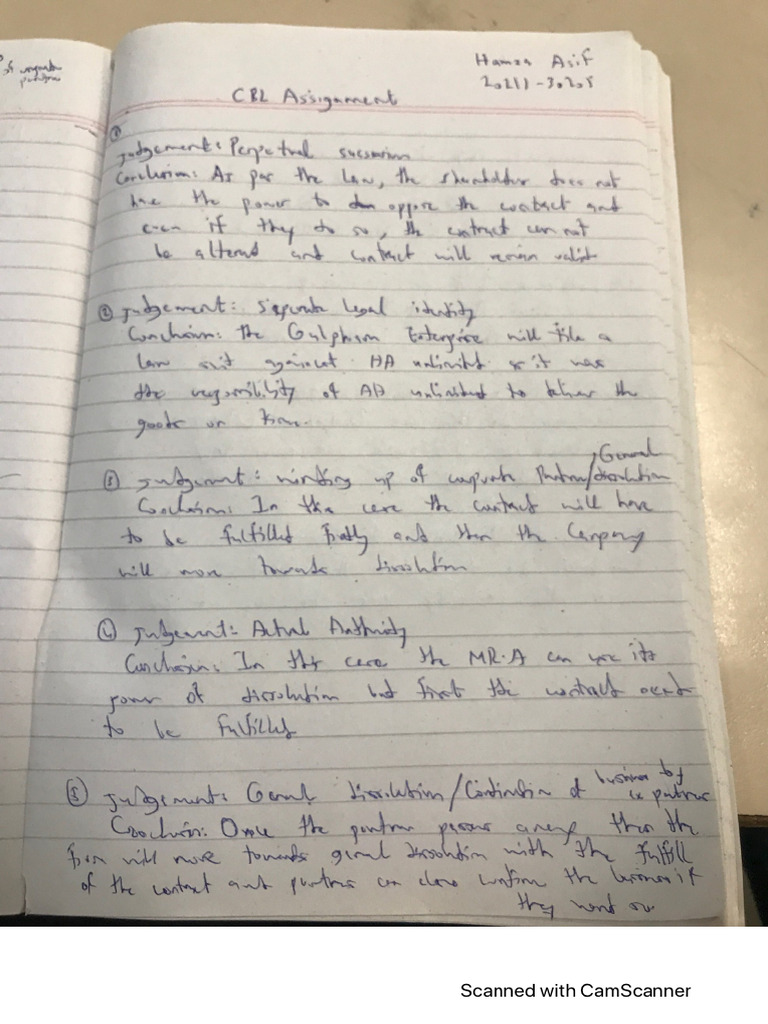 of corporate
partners
Hamza Asif
20211-30205
CBL Assignment
①
Judgement: Perpetual succession
Conclusion: As per the law, the shareholder does not
have the power to oppose the contract and
even if they do so, the contract can not
be altered and contract will remain valid
② Judgement: Separate legal identity
Conclusion: The Gulpham Enterprise will file a
law suit against AA unlimited as it was
the responsibility of AA unlimited to deliver the
goods on time.
, General
③ Judgement: winding up of corporate Partners/dissolution
Conclusion: In this case the contract will have
to be fulfilled firstly and then the Company
will move towards dissolution
④ Judgement: Actual Authority
Conclusion: In this case the MR.A can use its
power of dissolution but first the contract need
to be fulfilled
⑤ Judgement: General dissolution/Continuation of business by
ex partners
Conclusion: Once the partner passes away then the
firm will move towards general dissolution with the fulfill
of the contract and partners can also continue the business if
they want so
Scanned with CamScanner